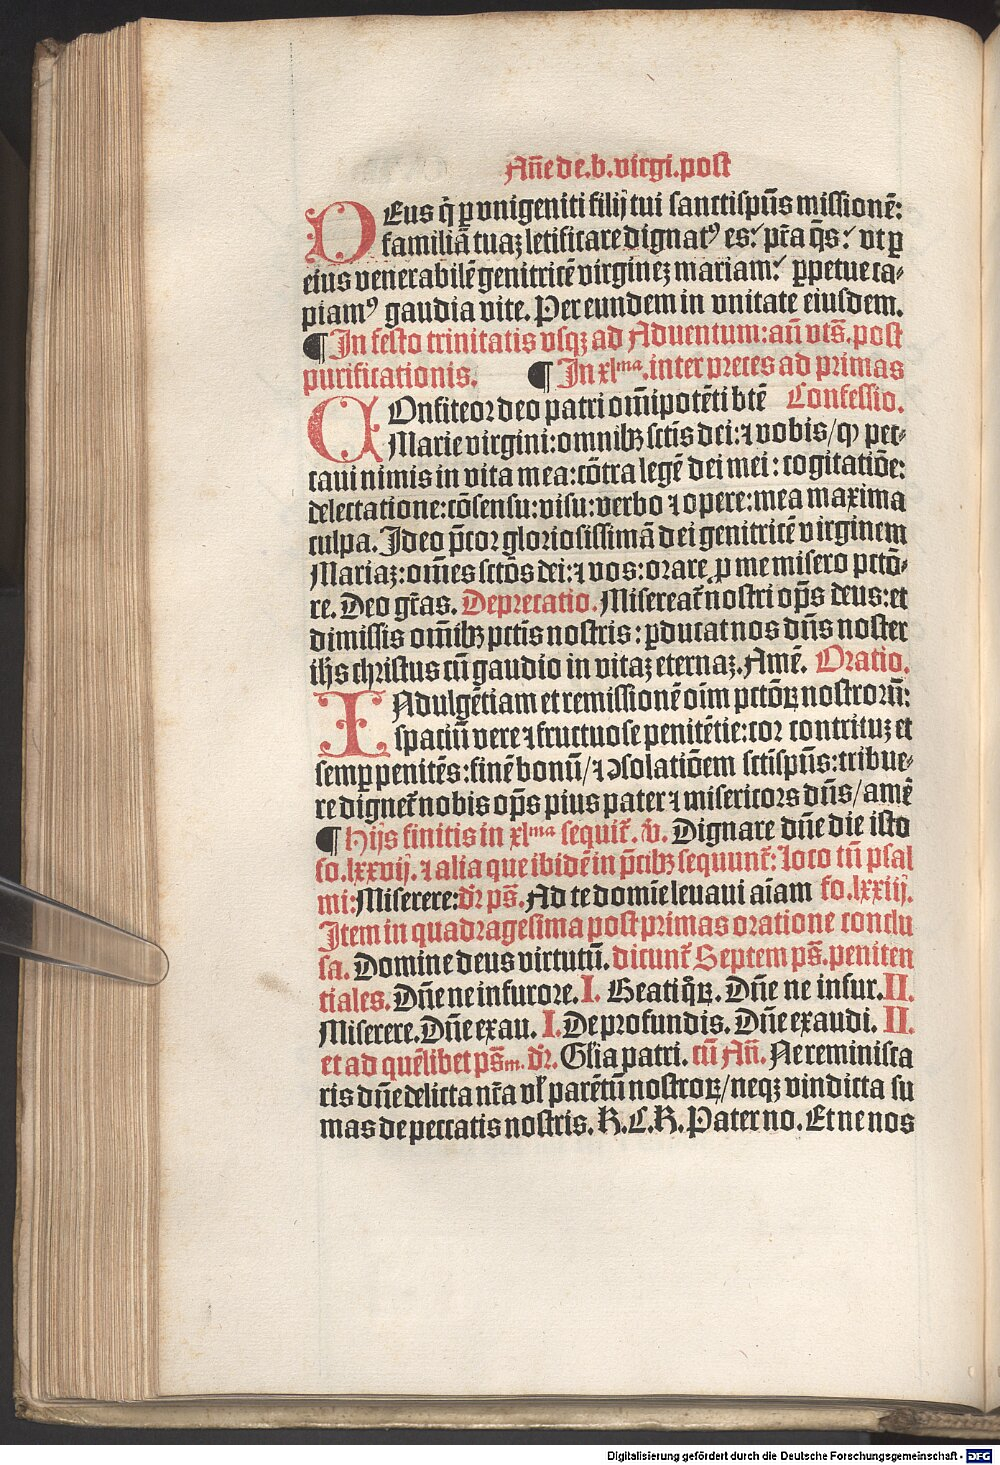 Añe de .b. virgi. post
DEus q̄ ꝑ vnigeniti filij tui sanctispūs missionē:
familiā tuaꝫ letificare dignatꝰ es: p̄ta q̄s: vt ꝑ
eius venerabilē genitricē virgineꝫ mariam: ꝑpetue ca-
piamꝰ gaudia vite. Per eundem in vnitate eiusdem.
¶ In festo trinitatis vsqꝫ ad Aduentum: añ vts̄. post
purificationis. ¶ In xlᵐᵃ. inter preces ad primas
COnfiteor deo patri om̄ipotēti btē Confessio.
Marie virgini: omnibꝫ sctīs dei: ⁊ vobis/ qꝛ pec-
caui nimis in vita mea: cōtra legē dei mei: cogitatiōe:
delectatione: cōsensu: visu: verbo ⁊ opere: mea maxima
culpa. Ideo p̄cor gloriosissimā dei genitricē virginem
Mariaꝫ: om̄es sctōs dei: ⁊ vos: orare ꝓ me misero pctō-
re. Deo gr̄as. Deprecatio. Misereat᷑ nostri op̄s deus: et
dimissis om̄ibꝫ pctīs nostris: ꝑducat nos dn̄s noster
ih̄s christus cū gaudio in vitaꝫ eternaꝫ. Amē. Oratio.
INdulgētiam et remissionē oīm pctōꝝ nostroꝝū:
spaciū vere ⁊ fructuose penitētie: cor contrituꝫ et
semꝑ penitēs: finē bonū/ ⁊ ꝯsolatiōem sctispūs: tribue-
re dignet᷑ nobis op̄s pius pater ⁊ misericors dn̄s/ amē
¶ Hijs finitis in xlᵐᵃ sequit᷑. ℣. Dignare dn̄e die isto
fo. lxxvij. ⁊ alia que ibidē in p̄cibꝫ sequunt᷑: loco tn̄ psal
mi: Miserere: dr̄ ps̄. Ad te domīe leuaui aīam fo. lxxiij.
Item in quadragesima post primas oratione conclu
sa. Domine deus virtutū. dicunt᷑ Septem ps̄. peniten
tiales. Dn̄e ne in furore. I. Beati qͦꝝ. Dn̄e ne in fur. II.
Miserere. Dn̄e exau. I. De profundis. Dn̄e exaudi. II.
et ad quēlibet ps̄m. dr̄. Glīa patri. cū Añ. Ne reminisca
ris dn̄e delicta nr̄a vl̄ parētū nostroꝝ/ neqꝫ vindicta su
mas de peccatis nostris. K. C. K. Pater no. Et ne nos
Digitalisierung gefördert durch die Deutsche Forschungsgemeinschaft - DFG